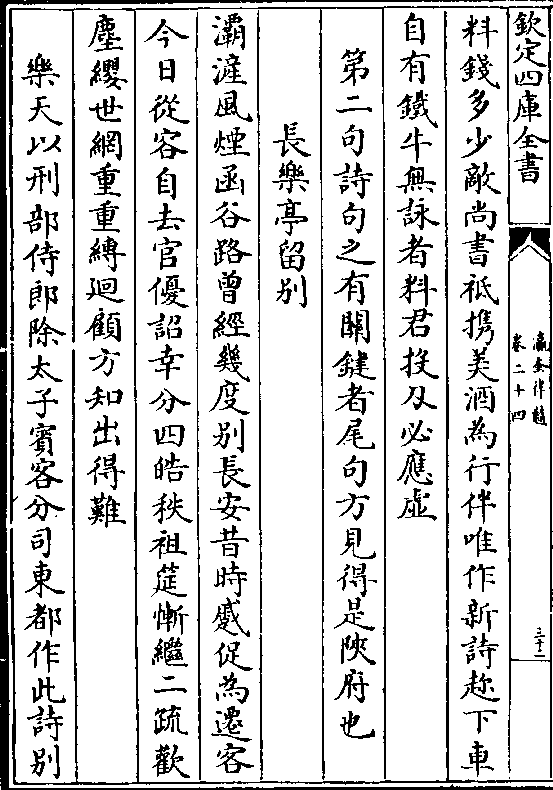 欽定四庫全書
瀛奎律髓
卷二十四
三十二
料錢多少敵尚書祗攜美酒為行伴唯作新詩趂下車
自有鐵牛無詠者料君投刄必應虚
第二句詩句之有關鍵者尾句方見得是陜府也
長樂亭留别
灞滻風煙函谷路曾經幾度别長安昔時蹙促為遷客
今日從容自去官優詔幸分四皓秩祖筵慚繼二疏歡
塵纓世網重重縛迴顧方知出得難
樂天以刑部侍郎除太子賓客分司東都作此詩别